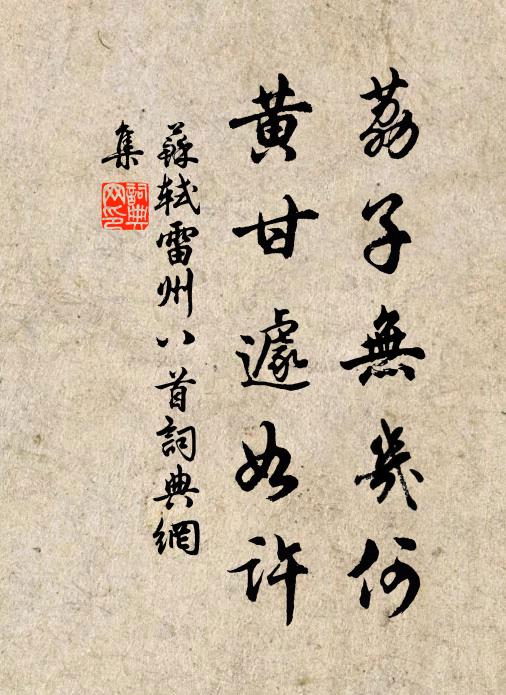 荔子無幾何
黃甘遽如許
蘇軾雷州八首詞典網
集
詞典网印